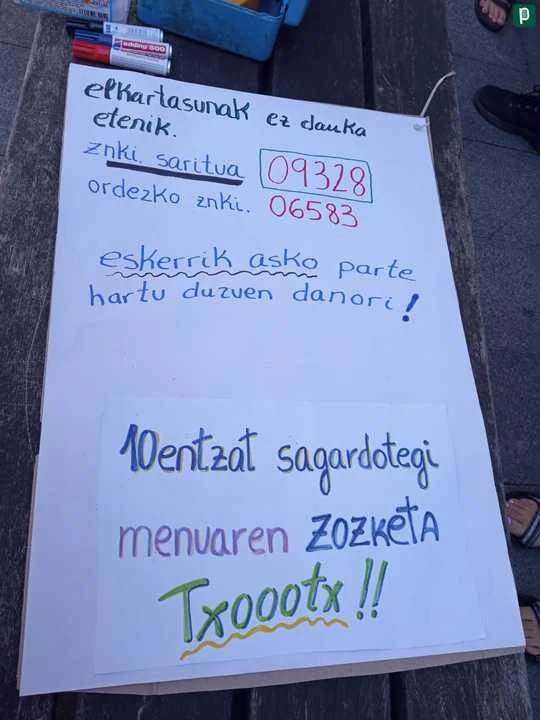 edding 500
elkartasunak ez dauka
etenik.
znki. saritua 09328
ordezko znki. 06583
eskerrik asko parte
hartu duzuen danori!
10entzat sagardotegi
menuaren ZOZKETA
Txoootx!!